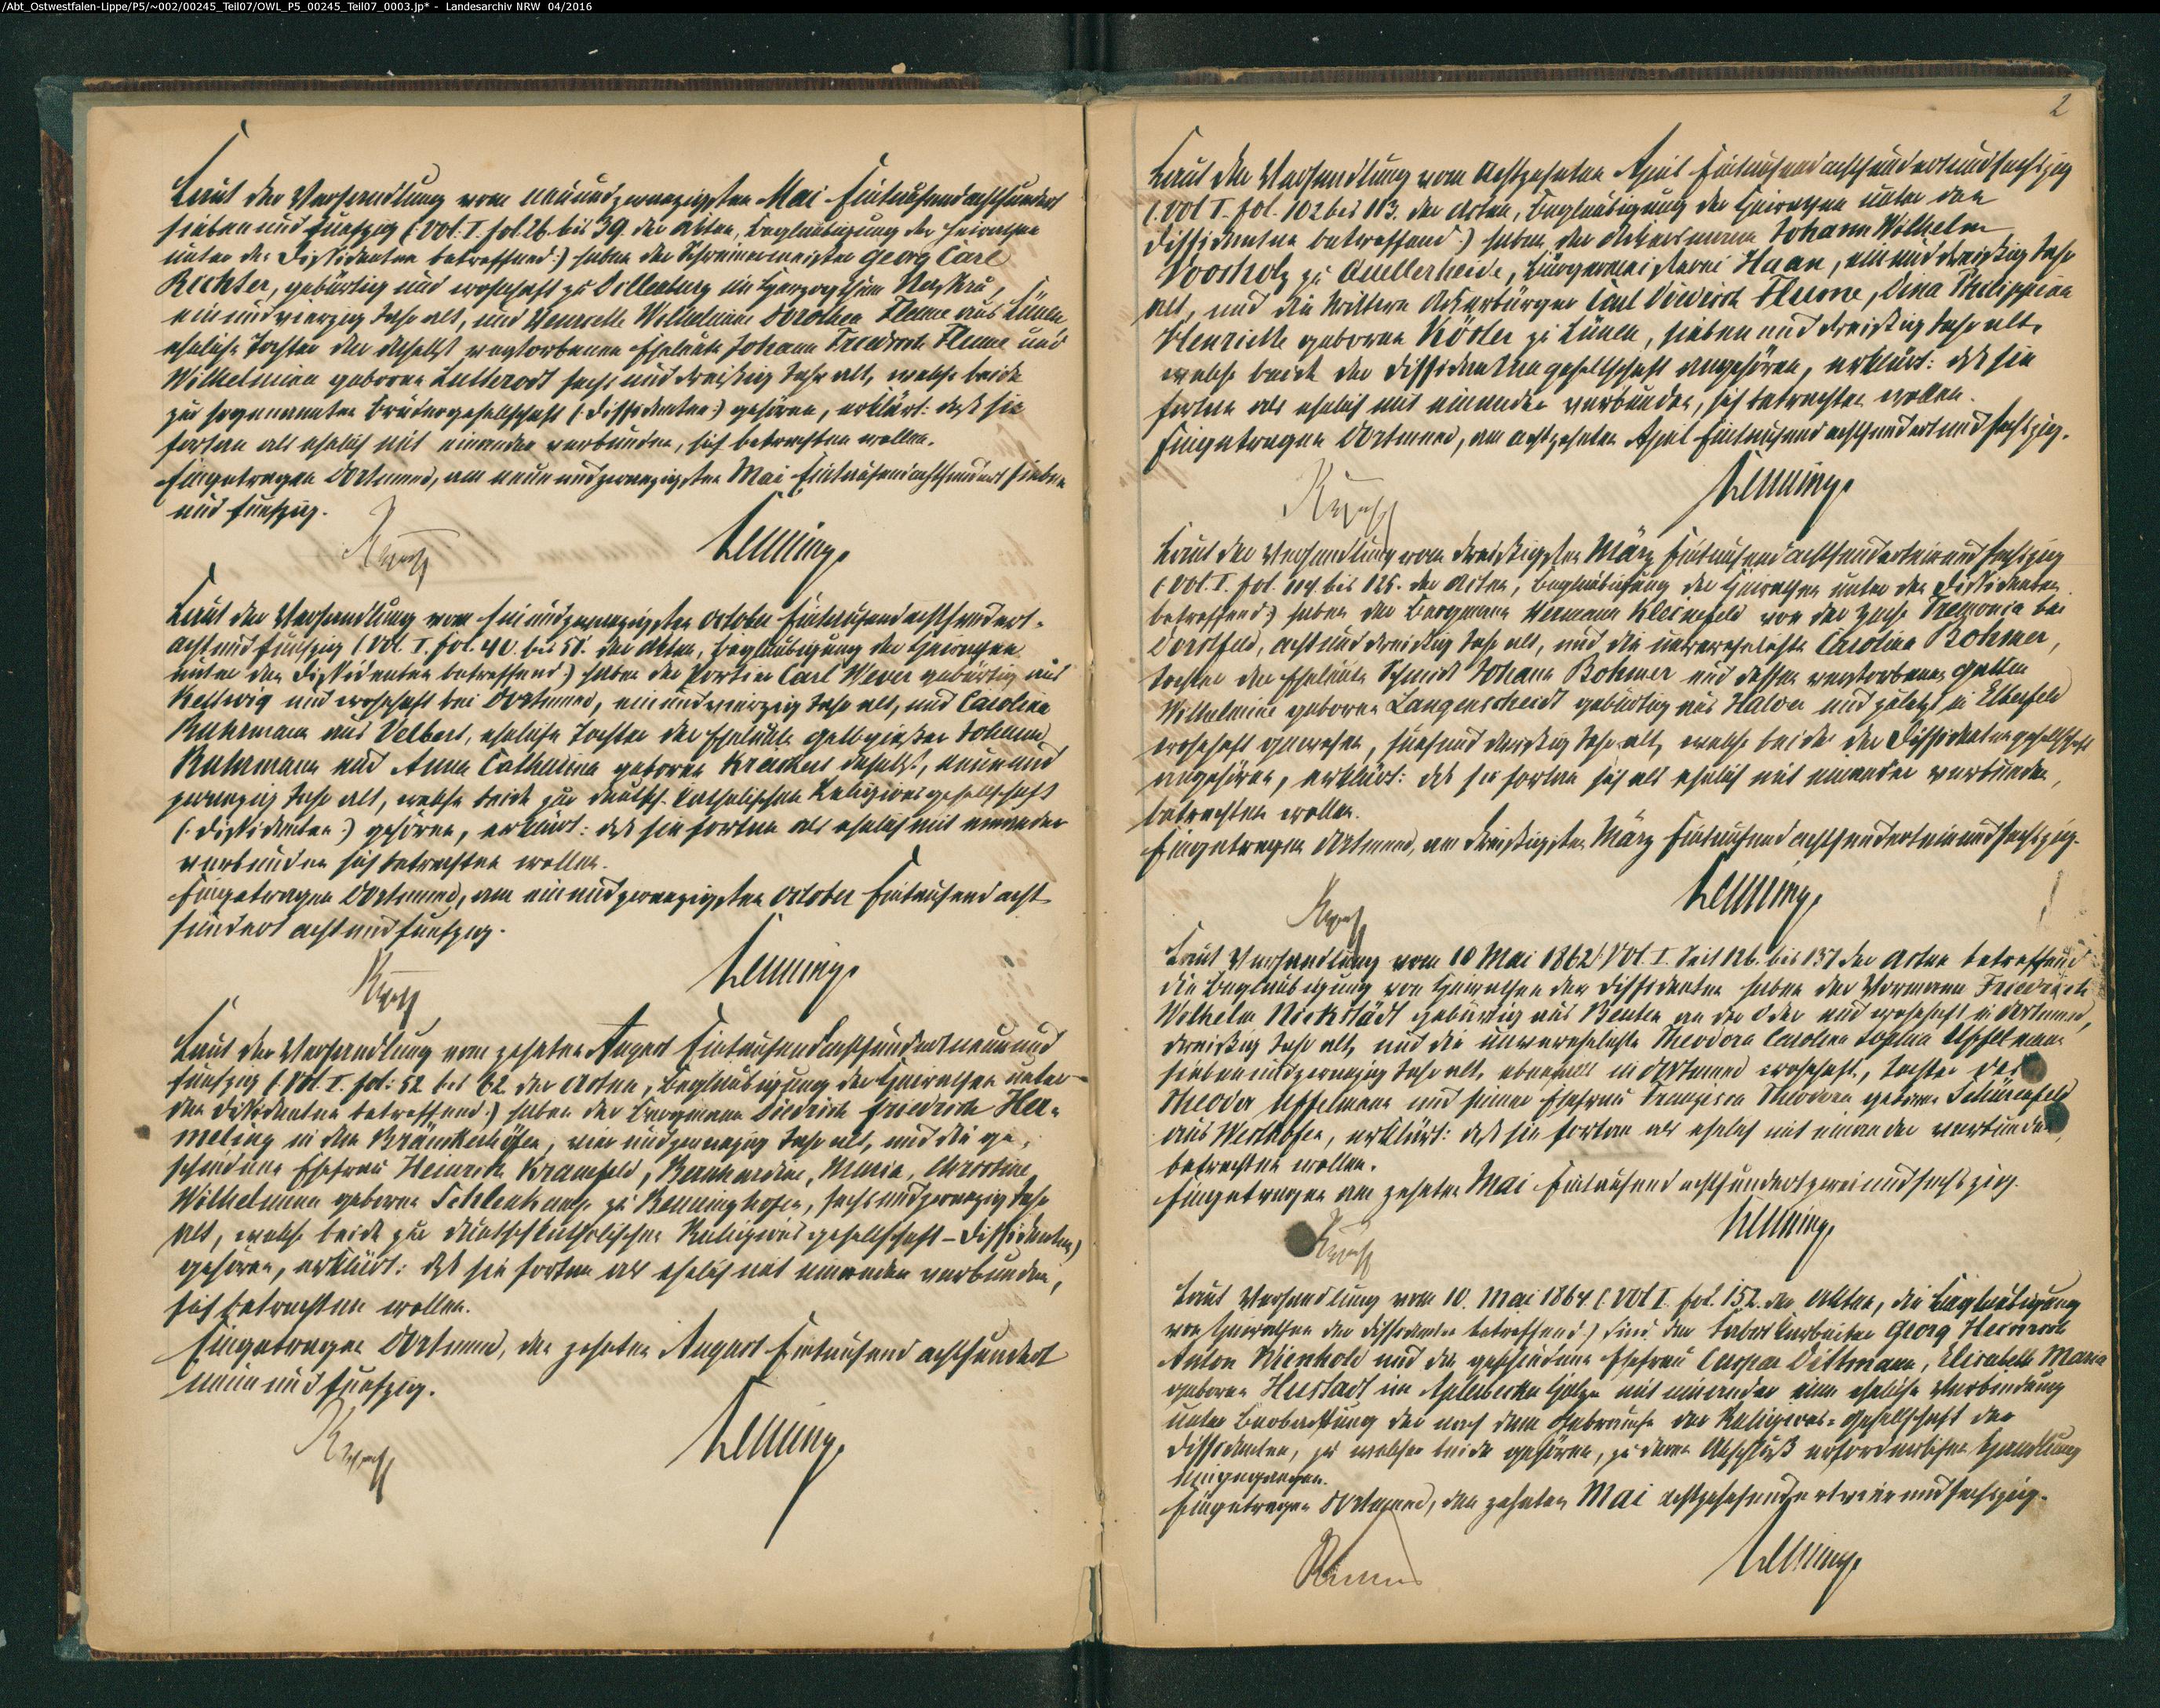 /Abt_Ostwestfalen-Lippe/P5/~002/00245_Teil07/OWL_P5_00245_Teil07_0003.jp* - Landesarchiv NRW 04/2016
Laut der Verhandlung vom neunundzwanzigsten Mai Eintausendachthundert
siebenundfunfzig (: Vol. I. fol. 26 bis 39 der Akten, Beglaubigung der Heirathen
unter den Dissidenten betreffend :) haben der Schreinermeister Georg Carl
Richter, gebürtig und wohnhaft zu Dillenburg im Herzogthum Nassau,
einundvierzig Jahr alt, und Henriette Wilhelmine Dorothea Flume aus Lünen
eheliche Tochter der daselbst verstorbenen Eheleute Johann Friedrich Flume und
Wilhelmina geborne Lutterodt sechs und dreißig Jahr alt, welche beide
zur sogenannten Brüdergesellschaft (: Dissidenten :) gehören, erklärt: daß sie
fortan als ehelich mit einander verbunden, sich betrachten wollen.
Eingetragen Dortmund, am neunundzwanzigsten Mai Eintausendachthundert sieben
und funfzig.
Laut der Verhandlung vom einundzwanzigsten October Eintausendachthundert-
achtundfunfzig (: Vol. I. fol. 40. bis 51. der Akten, Beglaubigung der Heirathen
unter den Dissidenten betreffend :) haben der Portier Carl Wever gebürtig aus
Kettwig und wohnhaft bei Dortmund, einundvierzig Jahr alt, und Carolina
Ruhrmann aus Velbert, eheliche Tochter der Eheleute Gelbgießer Johann
Ruhrmann und Anna Catharina geborne daselbst, neunund
zwanzig Jahr alt, welche beide zur deutsch-katholischen Religionsgesellschaft
(: Dissidenten :) gehören, erklärt: daß sie fortan als ehelich mit einander
verbunden sich betrachten wollen.
Eingetragen Dortmund, am einundzwanzigsten October Eintausend acht
hundert achtundfunfzig.
Laut der Verhandlung vom zehnten August Eintausendachthundertneunund
funfzig (: Vol. I. fol: 52 bis 62. der Akten, Beglaubigung der Heirathen unter
den Dissidenten betreffend :) haben der Bergmann Diedrich Friedrich Her-
meling in den vier und zwanzig Jahr alt, und die ge-
schiedene Ehefrau Heinrich Kramfeld, Bernhardine, Maria, Christine,
Wilhelmine geborne zu Benninghofen, sechsundzwanzig Jahr
alt, welche beide zur deutschkatholischen Religionsgesellschaft – Dissidenten)
gehören, erklärt: daß sie fortan als ehelich mit einander verbunden,
sich betrachten wollen.
Eingetragen Dortmund, den zehnten August Eintausend achthundert
neun und funfzig.
2
Laut der Verhandlung vom achtzehnten April Eintausendachthundertundsechszig
(: Vol I. fol. 102 bis 113. der Akten, Beglaubigung der Heirathen unter den
Dissidenten betreffend :) haben der Ackersmann Johann Wilhelm
Voosholz zu Quellerheide, Bürgermeisterei Haan, ein und dreißig Jahr
alt, und die Wittwe Ackerbürger Carl Diedrich Flume, Dina Philippina
Henriette geborne Köster zu Lünen, sieben und dreißig Jahr alt,
welche beide der Dissidentengesellschaft angehören, erklärt: daß sie
fortan als ehelich mit einander verbunden, sich betrachten wollen.
Eingetragen Dortmund, am achtzehnten April Eintausendachthundertundsechszig.
Laut der Verhandlung vom dreißigsten März Eintausendachthunderteinundsechszig
(: Vol. I. fol. 114 bis 125. der Akten, Beglaubigung der Heirathen unter den Dissidenten
betreffend :) haben der Bergmann Hermann Kleinefeld von der Zeche Tremonia bei
Dorstfeld, achtunddreißig Jahr alt, und die unverehelichte Carolina Bohmer,
Tochter der Eheleute Schmidt Johann Bohmer und dessen verstorbenen Gattin
Wilhelmine geborne Langenscheidt gebürtig aus Halver und zuletzt in Elberfeld
wohnhaft gewesen, fünfunddreißig Jahr alt, welche beide der Dissidentengesellschaft
angehören, erklärt: daß sie fortan sich als ehelich mit einander verbunden,
betrachten wollen.
Eingetragen Dortmund, am dreißigsten März Eintausendachthunderteinundsechszig.
Laut Verhandlung vom 10 Mai 1862 (Vol. I. Seit 126. bis 137 der Akten betreffend
die Beglaubigung von Heirathen der Dissidenten haben der Formann Friedrich
Wilhelm Nickstädt gebürtig aus Beuten an der Oder und wohnhaft in Dortmund,
dreißig Jahr alt, und die unverehelichte Theodora Carolina Sophia Uffelmann
siebenundzwanzig Jahr alt, ebenfalls in Dortmund wohnhaft, Tochter des
Theodor Uffelmann und seiner Ehefrau Franzisca Theodora geborne Schürenfeld
aus Westhofen, erklärt: daß sie fortan als ehelich mit einander verbunden,
betrachten wollen.
Eingetragen am zehnten Mai Eintausend achthundertzweiundsechszig.
Laut Verhandlung vom 10. Mai 1864 (: Vol I. fol. 152. der Akten, die Beglaubigung
von Heirathen der Dissidenten betreffend :) sind der Georg Heinrich
Anton Nienhold und die geschiedene Ehefrau Caspar Dittmann, Elisabeth Maria
geborne Hustadt im Aplerbecker Holze mit einander eine eheliche Verbindung
unter Beobachtung der nach dem Gebrauche der Religions-Gesellschaft der
Dissidenten, zu welcher beide gehören, zu deren Abschluß erforderlichen Handlung
eingegangen.
Eingetragen Dortmund, den zehnten Mai achtzehnhundertvierundsechszig.